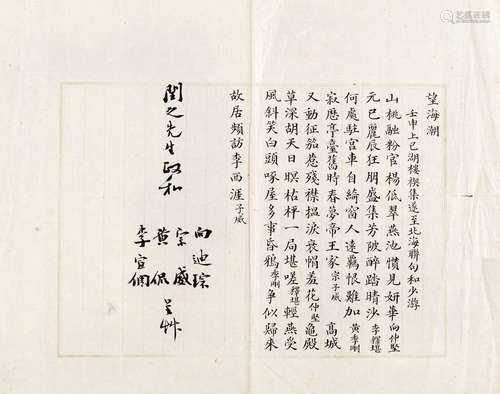 望海潮
壬申上巳湖樓禊集遂至北海聯句和少游
山桃融粉官楊低翠燕池慣見妍華向仲堅
元巳麗辰狂朋盛集芳陂醉踏晴沙李釋堪
何處駐宮車自綺窗人遠羈恨難加黃季剛
寂歷亭臺舊時春夢帝王家宗子威 高城
又動征笳惹殘襟搵淚衰帽羞花仲堅龜殿
草深胡天日暝枯枰一局堪嗟釋堪輕燕受
風斜笑白頭啄屋多事昏鴉季剛爭似歸來
故居頻訪李西涯子威
閏之先生政和
向迪琮
宗威
黃侃
李宣倜 呈艸